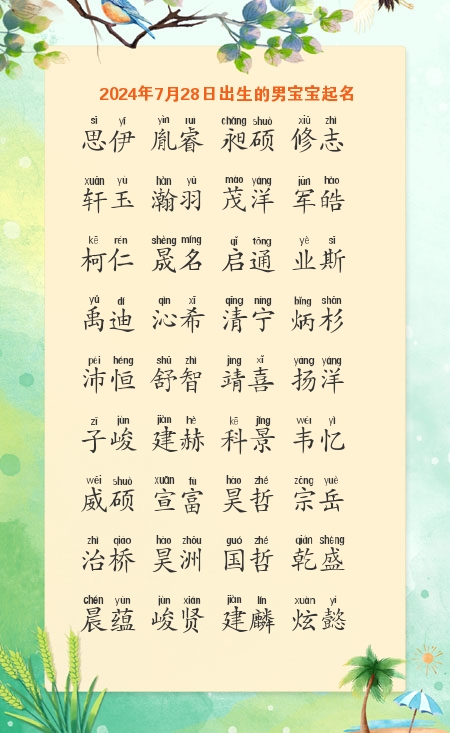 2024年7月28日出生的男宝宝起名
sī yī yìn ruì chǎng shuò xiū zhì
思伊 胤睿 昶硕 修志
xuān yù hàn yǔ mào yáng jūn hào
轩玉 瀚羽 茂洋 军皓
kē rén shèng míng qǐ tōng yè sī
柯仁 晟名 启通 业斯
yǔ dí qìn xī qīng níng bǐng shān
禹迪 沁希 清宁 炳杉
pèi héng shū zhì jìng xǐ yáng yáng
沛恒 舒智 靖喜 扬洋
zǐ jùn jiàn hè kē jǐng wéi yì
子峻 建赫 科景 韦忆
wēi shuò xuān fù hào zhé zōng yuè
威硕 宣富 昊哲 宗岳
zhì qiáo hào zhōu guó zhé qián shèng
治桥 昊洲 国哲 乾盛
chén yùn jùn xián jiàn lín xuàn yì
晨蕴 峻贤 建麟 炫懿